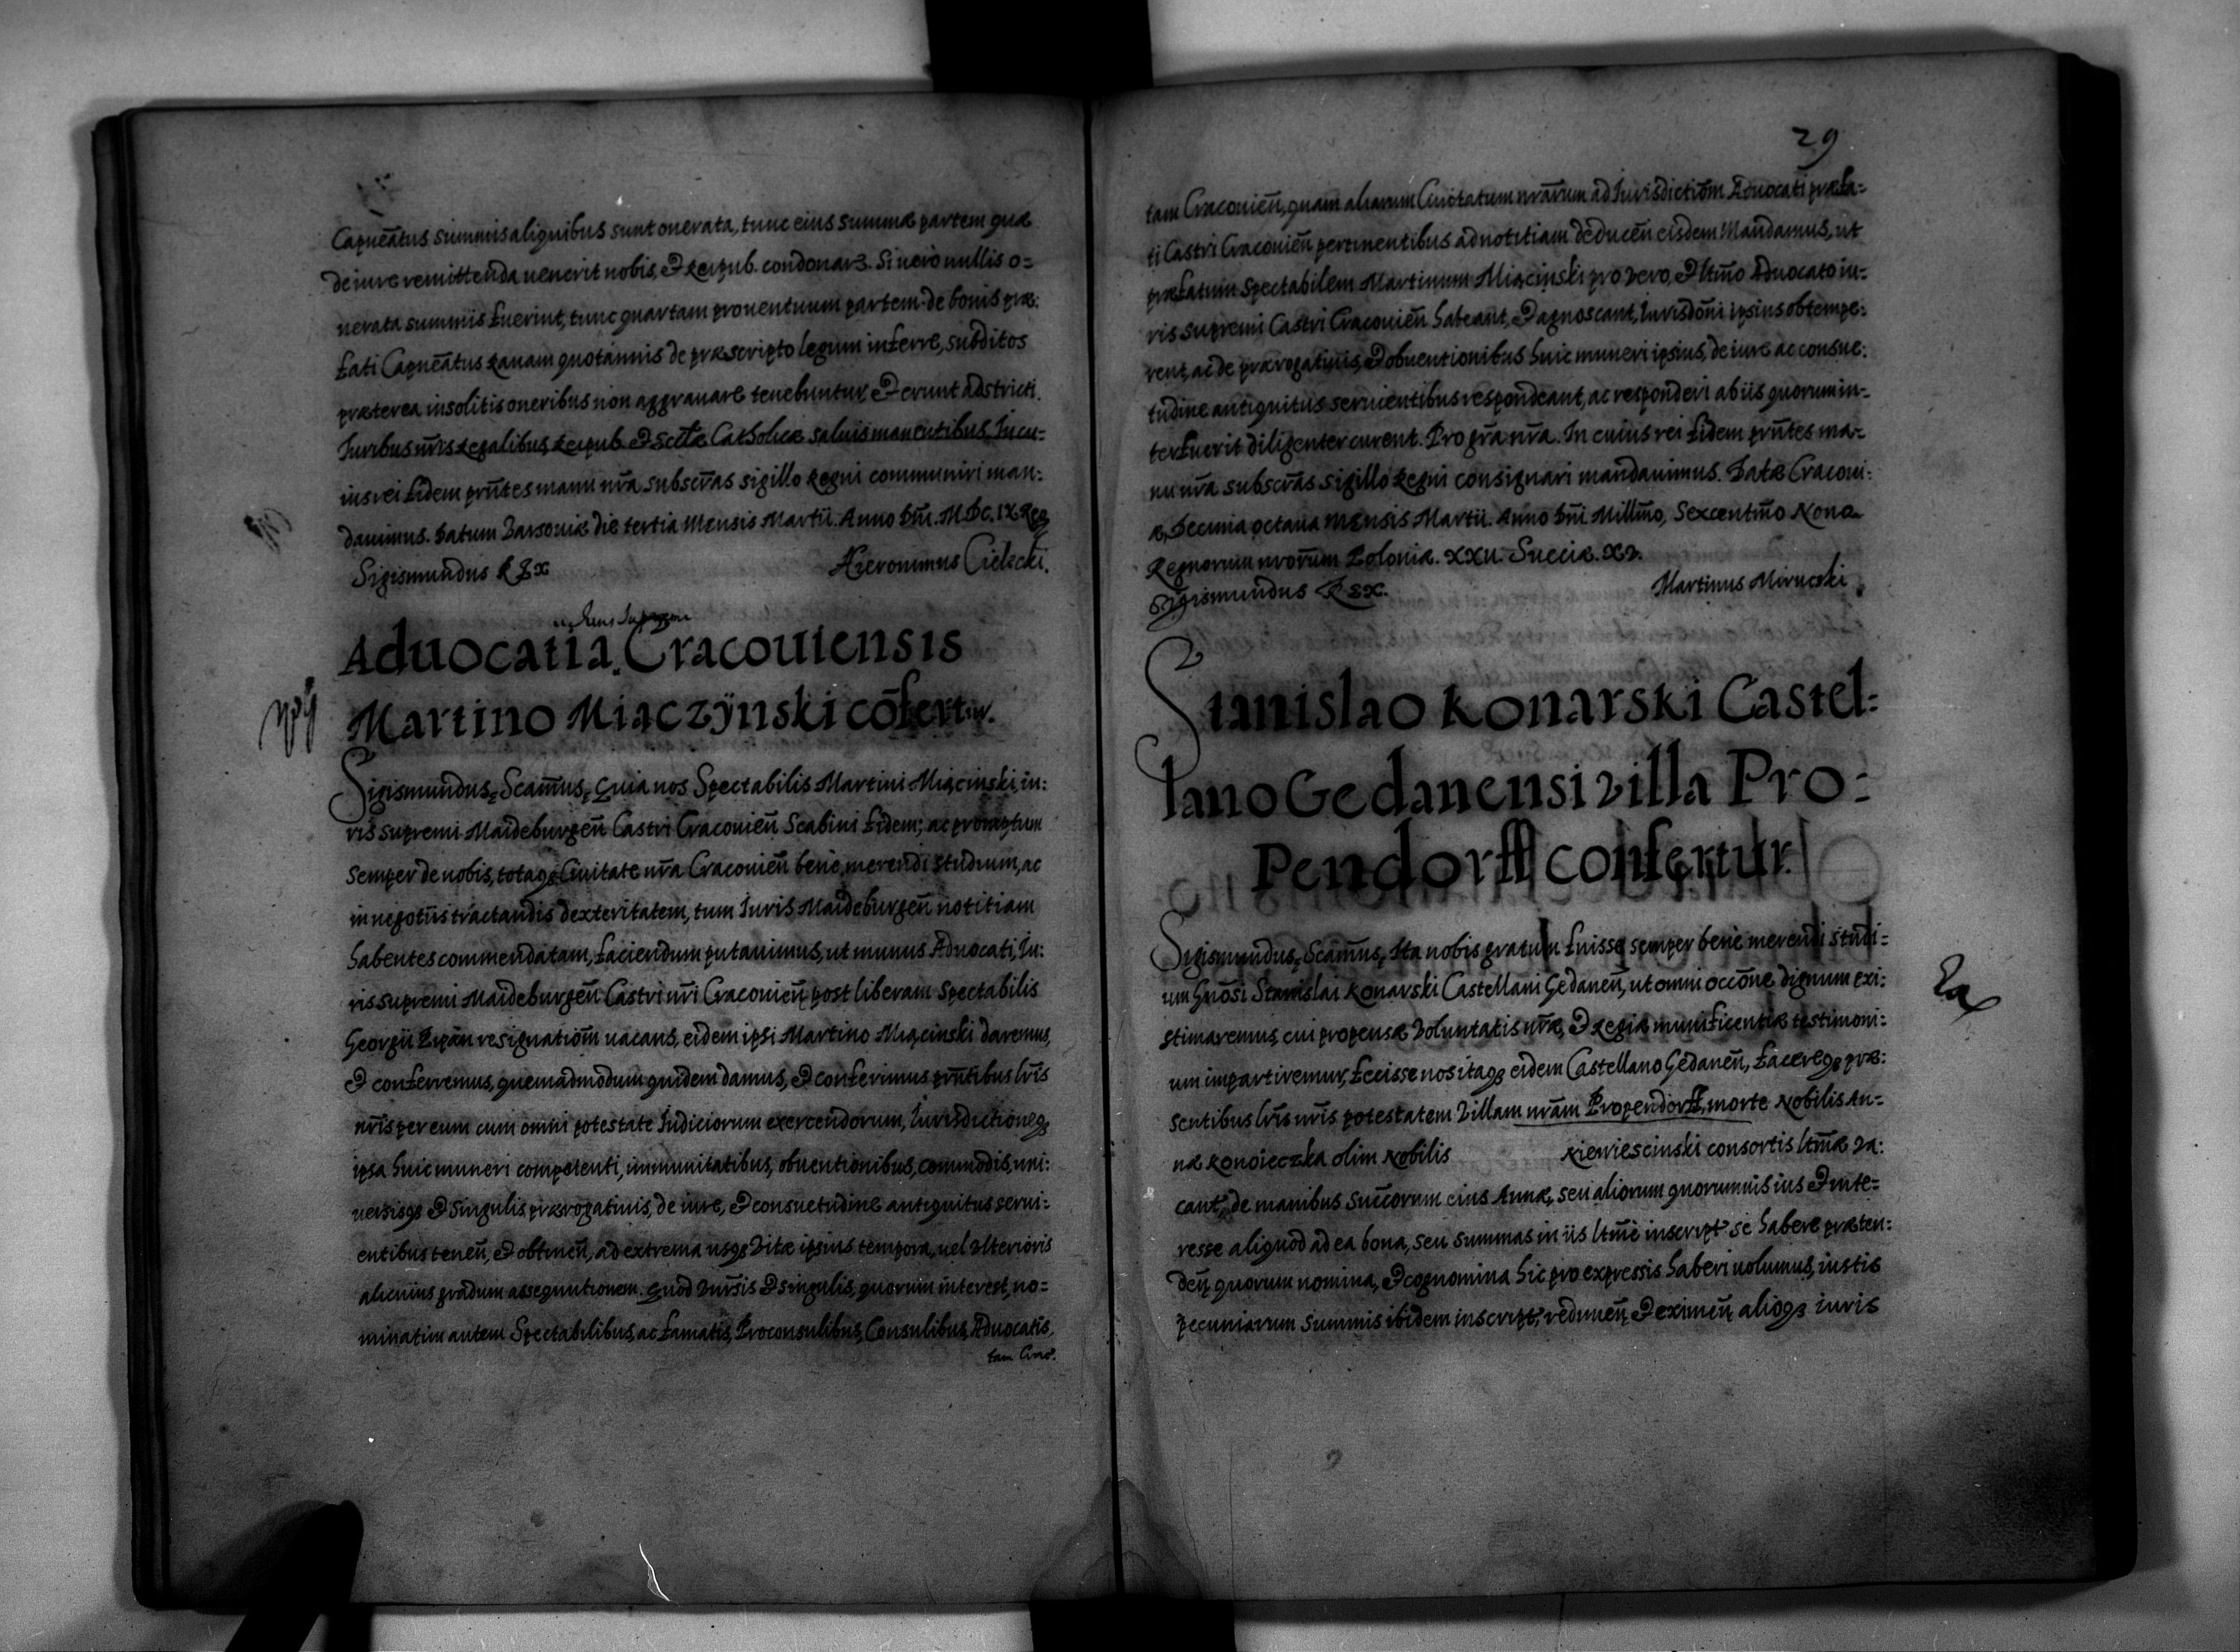 Capneātus summis aliquibus sunt onerata, tunc eius summæ partem quæ
de iure remittenda uenerit nobis, et Reipub. condonare. Si uerò nullis o=
nerata summis fuerint, tunc quartam prouentuum partem de bonis præ:
fati Capneātus Rauam quotannis de præscripto legum inferre, subditos
præterea insolitis oneribus non aggrauare tenebuntur, et erunt adstricti.
Iuribus nr̄is Regalibus, Reipub. et Sctæ Catholicæ saluis manentibus. In cu=
ius rei fidem prn̄tes manu nr̄a subscr̄as sigillo Regni communiri man:
dauimus. Datum Varsouiæ die tertia Mensis Martii. Anno Dn̄i. M.DC.IX. Reg
Sigismundus Rex
Hieronimus Cielecki.
Iuris Supremi
Aduocatia Cracouiensis
Martino Miaczÿnski cōfertur.
Sigismundus, Scam̄us, Quia nos Spectabilis Martini Miącinski, iu:
ris supremi Maideburgen̄ Castri Cracouien̄ Scabini fidem; ac promptum
semper de nobis, totaq3 Ciuitate nr̄a Cracouien̄ benè merendi studium, ac
in negotiis tractandis dexteritatem, tum Iuris Maideburgen̄ notitiam
habentes commendatam, faciendum putauimus, ut munus Aduocati, Iu:
ris supremi Maideburgen̄ Castri nr̄i Cracouien̄ post liberam Spectabilis
Georgii Pipān resignatiōm uacans, eidem ipsi Martino Miącinski daremus,
et conferremus, quemadmodum quidem damus, et conferimus prn̄tibus lr̄is
nr̄is per eum cum omni potestate Iudiciorum exercendorum, Iurisdictioneq3
ipsa huic muneri competenti, immunitatibus, obuentionibus, commodis, uni:
uersisq3 et singulis prærogatiuis, de iure, et consuetudine antiquitus serui:
entibus tenen̄, et obtinen̄, ad extrema usq3 Vitæ ipsius tempora, uel Vlterioris
alicuius gradum assequutionem. Quod Vnr̄sis et singulis, quorum interest, no=
minatim autem Spectabilibus, ac famatis, Proconsulibus, Consulibus, Aduocatis,
tam Crac.
29
tam Cracouien̄, quam aliarum Ciuitatum nr̄arum ad Iurisdictiōm Aduocati præfa=
ti Castri Cracouien̄ pertinentibus ad notitiam deducen̄ eisdem Mandamus, ut
præfatum Spectabilem Martinum Miącinski pro Vero, et ltm̄o Aduocato iu=
ris supremi Castri Cracouien̄ habeant, et agnoscant, Iurisdōni ipsius obtempe:
rent, ac de prærogatiuis, et obuentionibus huic muneri ipsius, de iure ac consue:
tudine antiquitus seruientibus respondeant, ac responderi ab iis quorum in=
terfuerit diligenter curent. Pro gr̄a nr̄a. In cuius rei fidem prn̄tes ma=
nu nr̄a subscr̄as sigillo Regni consignari mandauimus. Datæ Cracoui:
æ, Decima octaua Mensis Martii. Anno Dn̄i Millm̄o, Sexcentm̄o Nono
Regnorum nrorum Poloniæ. XXII. Sueciæ. XV.
Sigismundus Rex.
Martinus Mirucski
Stanislao Konarski Castel=
lano Gedanensi Villa Pro=
Pendorff confertur.
Sigismundus, Scam̄us, Ita nobis gratum fuisse semper benè merendi studi=
um Gnōsi Stanislai Konarski Castellani Gedanen̄, ut omni occōne dignum exi:
stimaremus, cui propensæ Voluntatis nr̄æ, et Regiæ munificentiæ testimoni:
um impartiremur, fecisse nos itaq3 eidem Castellano Gedanen̄, facereq3 præ:
sentibus lr̄is nr̄is potestatem Villam nr̄am Propendorff, morte Nobilis An=
næ Konoieczka olim Nobilis Niewiescinski consortis ltm̄æ Va:
cant, de manibus Succorum eius Annæ, seu aliorum quorumuis ius et inte=
resse aliquod ad ea bona, seu summas in iis ltm̄è inscript. se habere præten:
den̄, quorum nomina, et cognomina hic pro expressis haberi uolumus, iustis
pecuniarum summis ibidem inscript. redimen̄, et eximen̄ alioq3 iuris